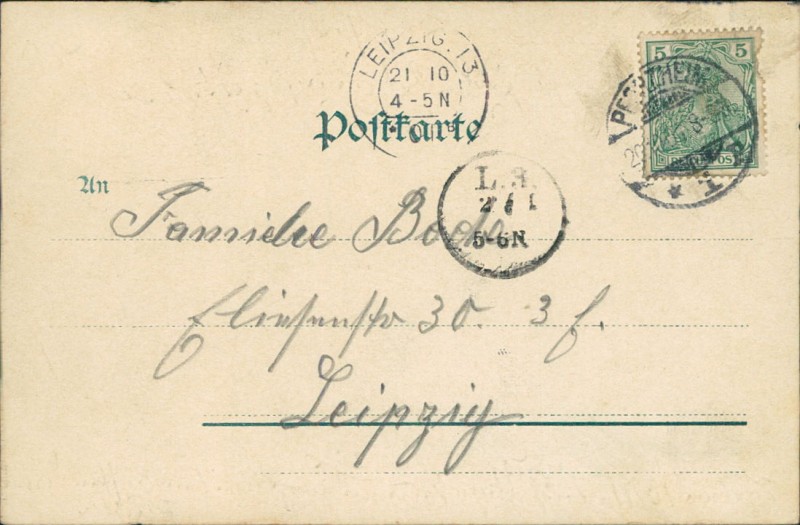 LEIPZIG. 13
21 10
4-5N
5 5
PFORZHEIM
8-
REICHSPOST
Postkarte
An
L. 3.
5-6N
Familie Bode
Elisenstr 30. 3 f.
Leipzig